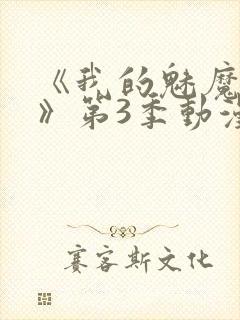 《我的魅魔
》第3季動漫
赛客斯文化